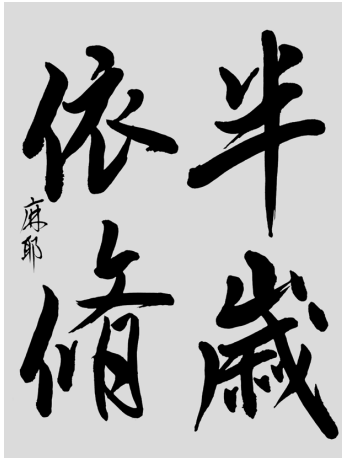 半歳
依脩
麻耶